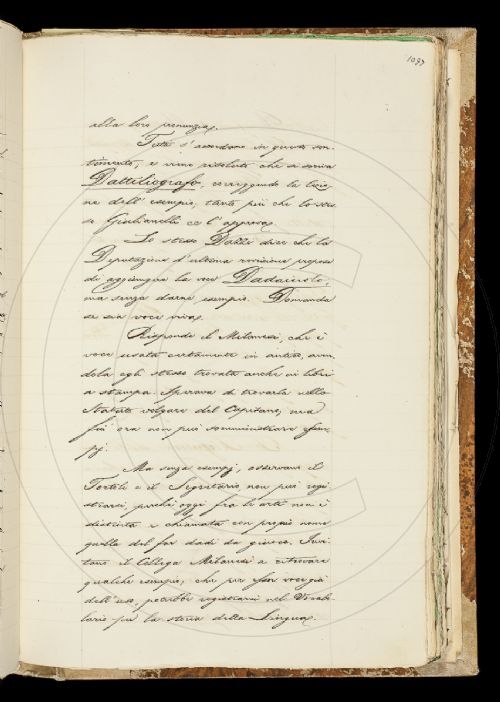 1097
alla loro pronunzia.
Tutti s'accordano in questo sen-
timento, e viene risoluto che si scriva
Dattiliografo, correggendo la lezio-
ne dell'esempio, tanto più che lo stes-
so Giulianelli ce l'approva.
Lo stesso Dazzi dice che la
Deputazione d'ultima revisione propose
di aggiungere la voce Dadaiuolo,
ma senza darne esempio. Domanda
se sia voce viva.
Risponde il Milanesi, che è
voce usata certamente in antico, aven-
dola egli stesso trovata anche in libri
a stampa. Sperava di trovarla nello
Statuto volgare del Capitano, ma
fin ora non può somministrare esem-
pj.
Ma senza esempj, osservano il
Tortoli e il Segretario non può regi-
strarsi, perchè oggi fra le arti non è
distinta e chiamata con proprio nome
quella del far dadi da giuoco. Invi-
tano il Collega Milanesi a ritrovare
qualche esempio, che per esser voce già
dell'uso, potrebbe registrarsi nel Vocabo-
lario per la storia della Lingua.